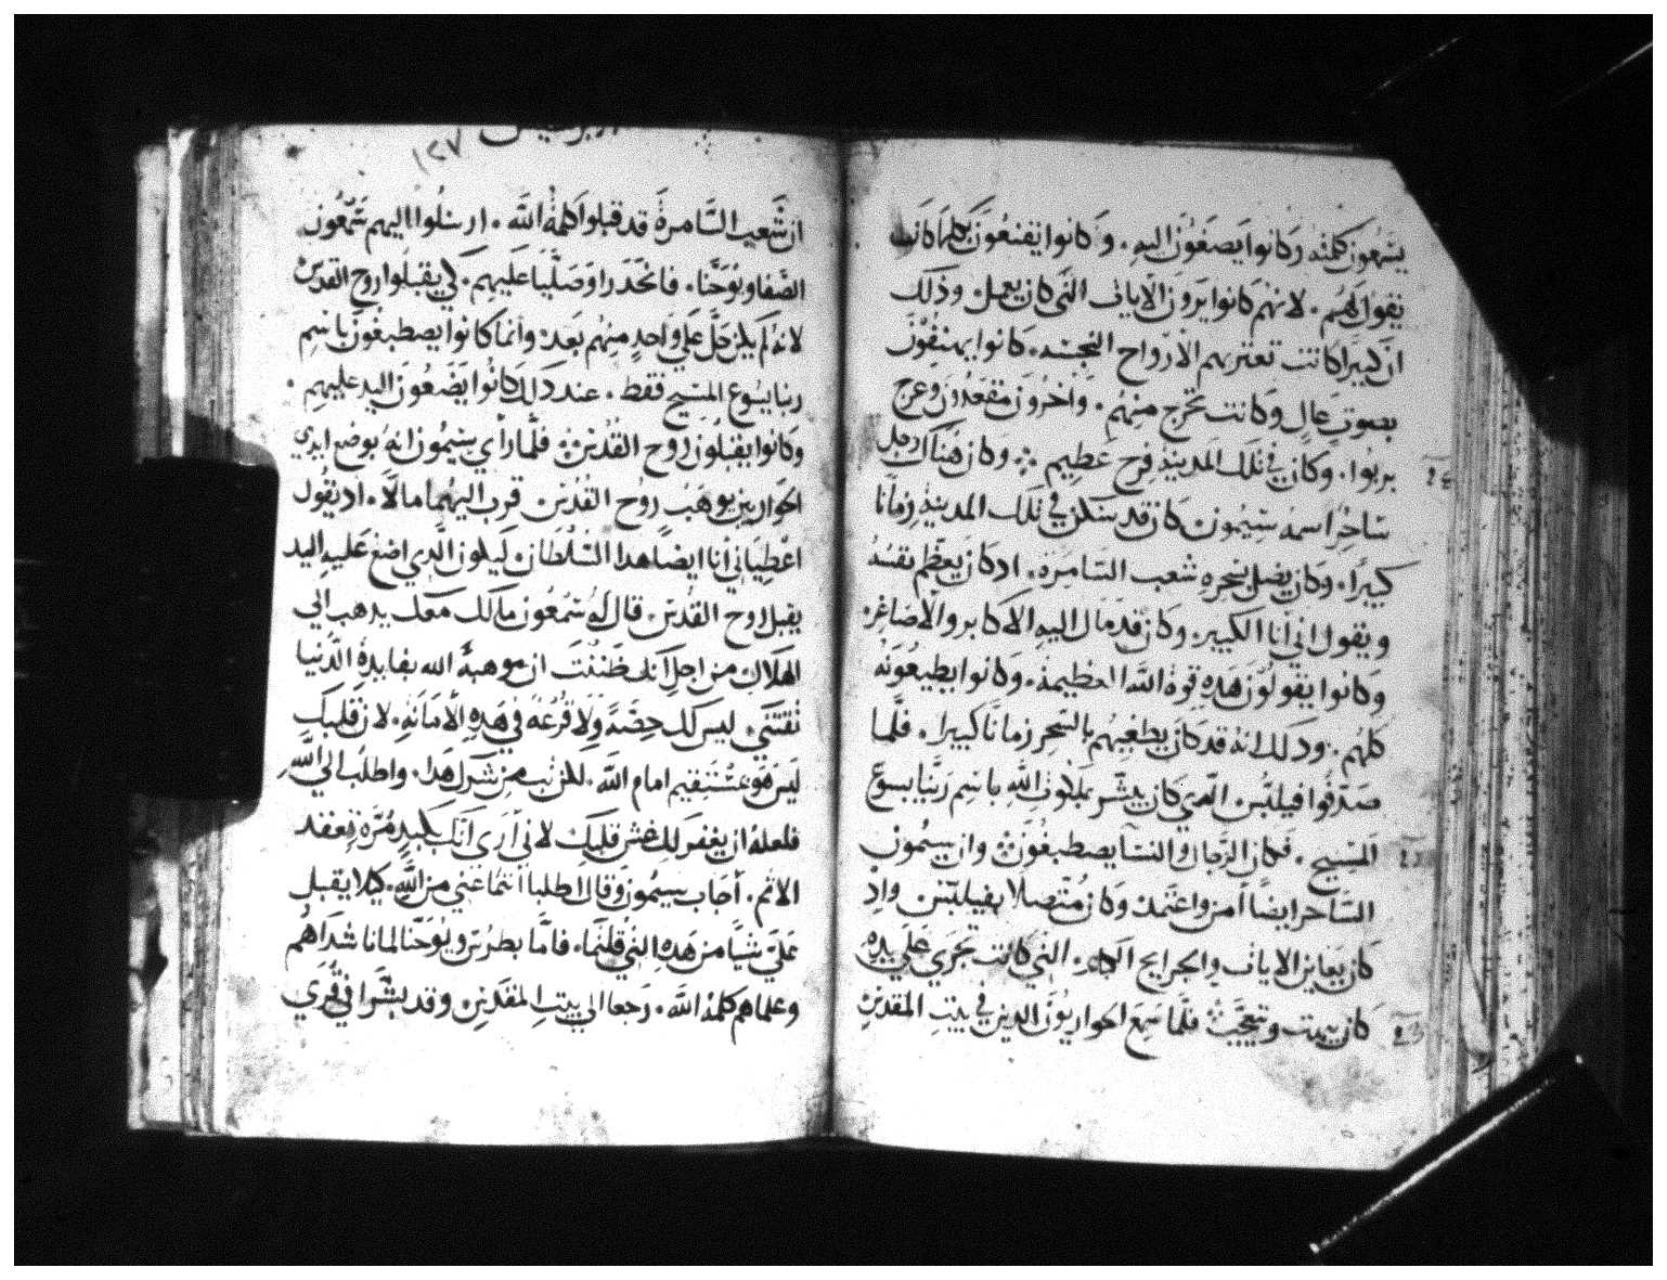 يسمعون كلمته وكانوا يصغون اليه. وكانوا يقنعون بكلما كان
يقول لهم. لانهم كانوا يرون الايات التي كان يعمل. وذلك
ان كبيرا كانت تعتريهم الارواح النجسه. كانوا يهتفون
بصوت عال وكانت تخرج منهم. واخرون مقعدون وعرج
بريوا. وكان في تلك المدينه فرح عظيم وكان هناك رجل
ساحر اسمه سيمون كان قد سكن في تلك المدينه زمانا
كبيرا. وكان يضل بسحره شعب السامره. اد كان يعظم نفسه
ويقول اني انا الكبير. وكان قد مال اليه الاكابر والاصاغر.
وكانوا يقولون هده قوة الله العظيمه. وكانوا يطيعونه
كلهم. ودلك انه قد كان يطغيهم بالسحر زمانا كبيرا. فلما
صدقوا فيلبس الدي كان يبشر بملكوت الله باسم ربنا يسوع
المسيح. فكان الرجال والنسا يصطبغون وان سيمون
الساحر ايضا امن واعتمد وكان متصلا بفيلبس واد
كان يعاين الايات والجرايح التي كانت تجري علي يده
كان يبهت ويتعجب فلما سمع الحواريون الدين في بيت المقدس
١٢٧
ان شعب السامرة قد قبلوا كلمة الله. ارسلوا اليهم شمعون
الصفا ويوحنا. فانحدرا وصليا عليهم. كي يقبلوا روح القدس
لانه لم يكن حل علي واحد منهم بعد وانما كانوا يصطبغون باسم
ربنا يسوع المسيح فقط. عند دلك كانوا يضعون اليد عليهم.
وكانوا يقبلون روح القدس فلما راي سيمون انه بوضع ايدي
الحواريين يوهب روح القدس قرب اليهما مالا. اد يقول
اعطياني انا ايضا هدا السلطان ليكون الدي اضع عليه اليد
يقبل روح القدس. قال له شمعون مالك معك يدهب الي
الهلاك من اجل انك ظننت ان موهبة الله بفايدة الدنيا
تقتني. ليس لك حصه ولا قرعه في هده الامانه. لان قلبك
ليس هو مستقيم امام الله. لكن تب من شرك هدا. واطلب الي الله
فلعله ان يغفر لك غش قلبك لاني اري انك بكبد مرة وعقد
الاثم. اجاب سيمون وقال اطلبا انتما عني من الله. كيلا يقبل
علي شيا من هده التي قلتما. فاما بطرس ويوحنا لما ناشداهم
وعلماهم كلمة الله. رجعا الي بيت المقدس وقد بشرا في قري